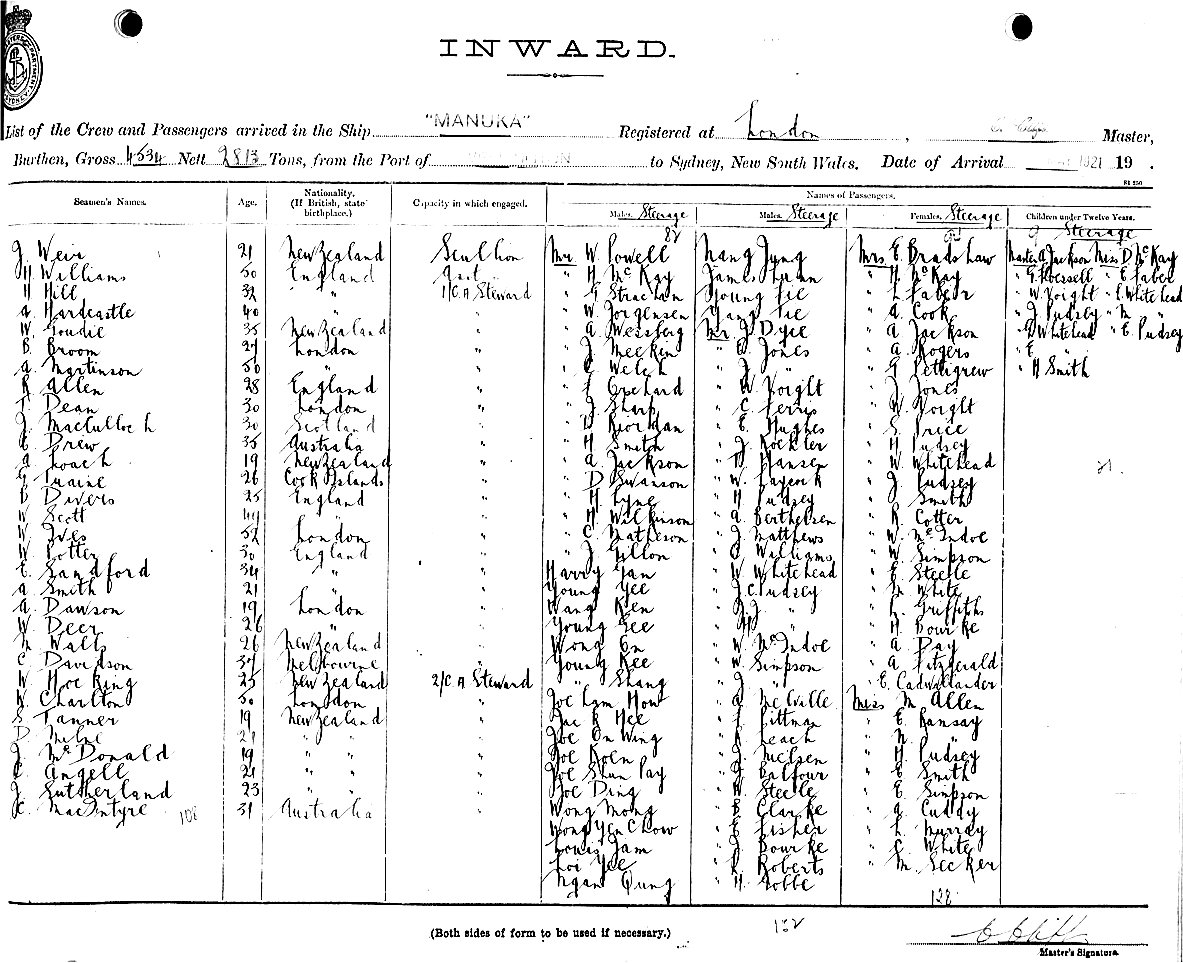 INWARD.
List of the Crew and Passengers arrived in the Ship "MANUKA" Registered at London, Master,
Burthen, Gross 4534 Nett 2813 Tons, from the Port of to Sydney, New South Wales. Date of Arrival 1921 19 .
Seamen's Names. Age. Nationality. (If British, state birthplace.) Capacity in which engaged. Names of Passengers.
Males. Steerage Males. Steerage Females. Steerage Children under Twelve Years.
Steerage
J. Weir 21 New Zealand Scullion Mr W. Powell Nang Jung Mrs E. Bradshaw Master A Jackson Miss D McKay
H Williams 50 England " H McKay James " H. McKay " G. " E. Faber
H Hill 32 " 1/C.A Steward " G Strachan Young " L Faber " W. Voight " E. Whitehead
A. Hardcastle 40 " " " W Jorgensen " A. Cook " J Pudsey " M "
W. Goudie 35 New Zealand " " A Wessberg Mr J Dyce " A Jackson " G Whitehead " E. Pudsey
B. Broom 27 London " " J. Meekin " C. Jones " A Rogers " E "
A. Martinson 50 " " " C Welch " J. " " G Pettigrew " H Smith
R Allen 28 England " " F Orchard " W. Voight " J Jones
F Dean 30 London " " J. Sharp " C Ferris " W Voight
J. Macculloch 30 Scotland " " D Riordan " E. Hughes " S. Price
E. Drew 35 Australia " " H Smith " J. Kockler " H Pudsey
A Loach 19 New Zealand " " A. Jackson " D. Hansen " W Whitehead
G 26 Cook Islands " " D Swanson " W. Laycock " J. Pudsey 21.
B Divers 25 England " " H Lyne " H Pudsey " J Smith
W Scott 44 " " " H Wilkinson " A Berthelsen " R Cotter
W. Ives 52 London " " C. Matheson " J. Matthews " W. McIndoe
W. Potter 30 England " " J. Gillon " C Williams " W. Simpson
E. Sandford 34 " " Harry Yam " W Whitehead " E Steele
A. Smith 21 " " Young Yee " J.C. Pudsey " M White
A. Dawson 19 London " Wang Ken " J.J. " " L. Griffiths
W Deer 26 " " Young Gee " H " " H Bourke
M. Wall 26 New Zealand " Wong On " W. McIndoe " A Day
C Davidson 37 Melbourne " Young Kee " W. Simpson " A Fitzgerald
W Hoe King 25 New Zealand 2/C.A Steward " Shang " J. " " E. Cadwallander
W. Charlton 50 London " Joe Lam How " A McVille Miss M Allen
S. Tanner 19 New Zealand " " F Pittman " E Ramsay
D Milne 21 " " " Joe On Wing " R Leach " N "
J. McDonald 19 " " " Joe Koen " J. Nielsen " H Pudsey
C. Angell 21 " " " Joe Shun Pay " J. Balfour " E Smith
J. Sutherland 23 " " " Joe Ding " W. Steele " E. Simpson
C. MacIntyre 108 31 Australia " Wong Mong " B Clarke " A Cuddy
Wong Yen Chow " E Fisher " L. Murray
Louis Jam " J. Bourke " C. White
Loi Yee " R Roberts " M. Secker
Ngan Qung " H. Jobbe
128
132
(Both sides of form to be used if necessary.)
Master's Signature.